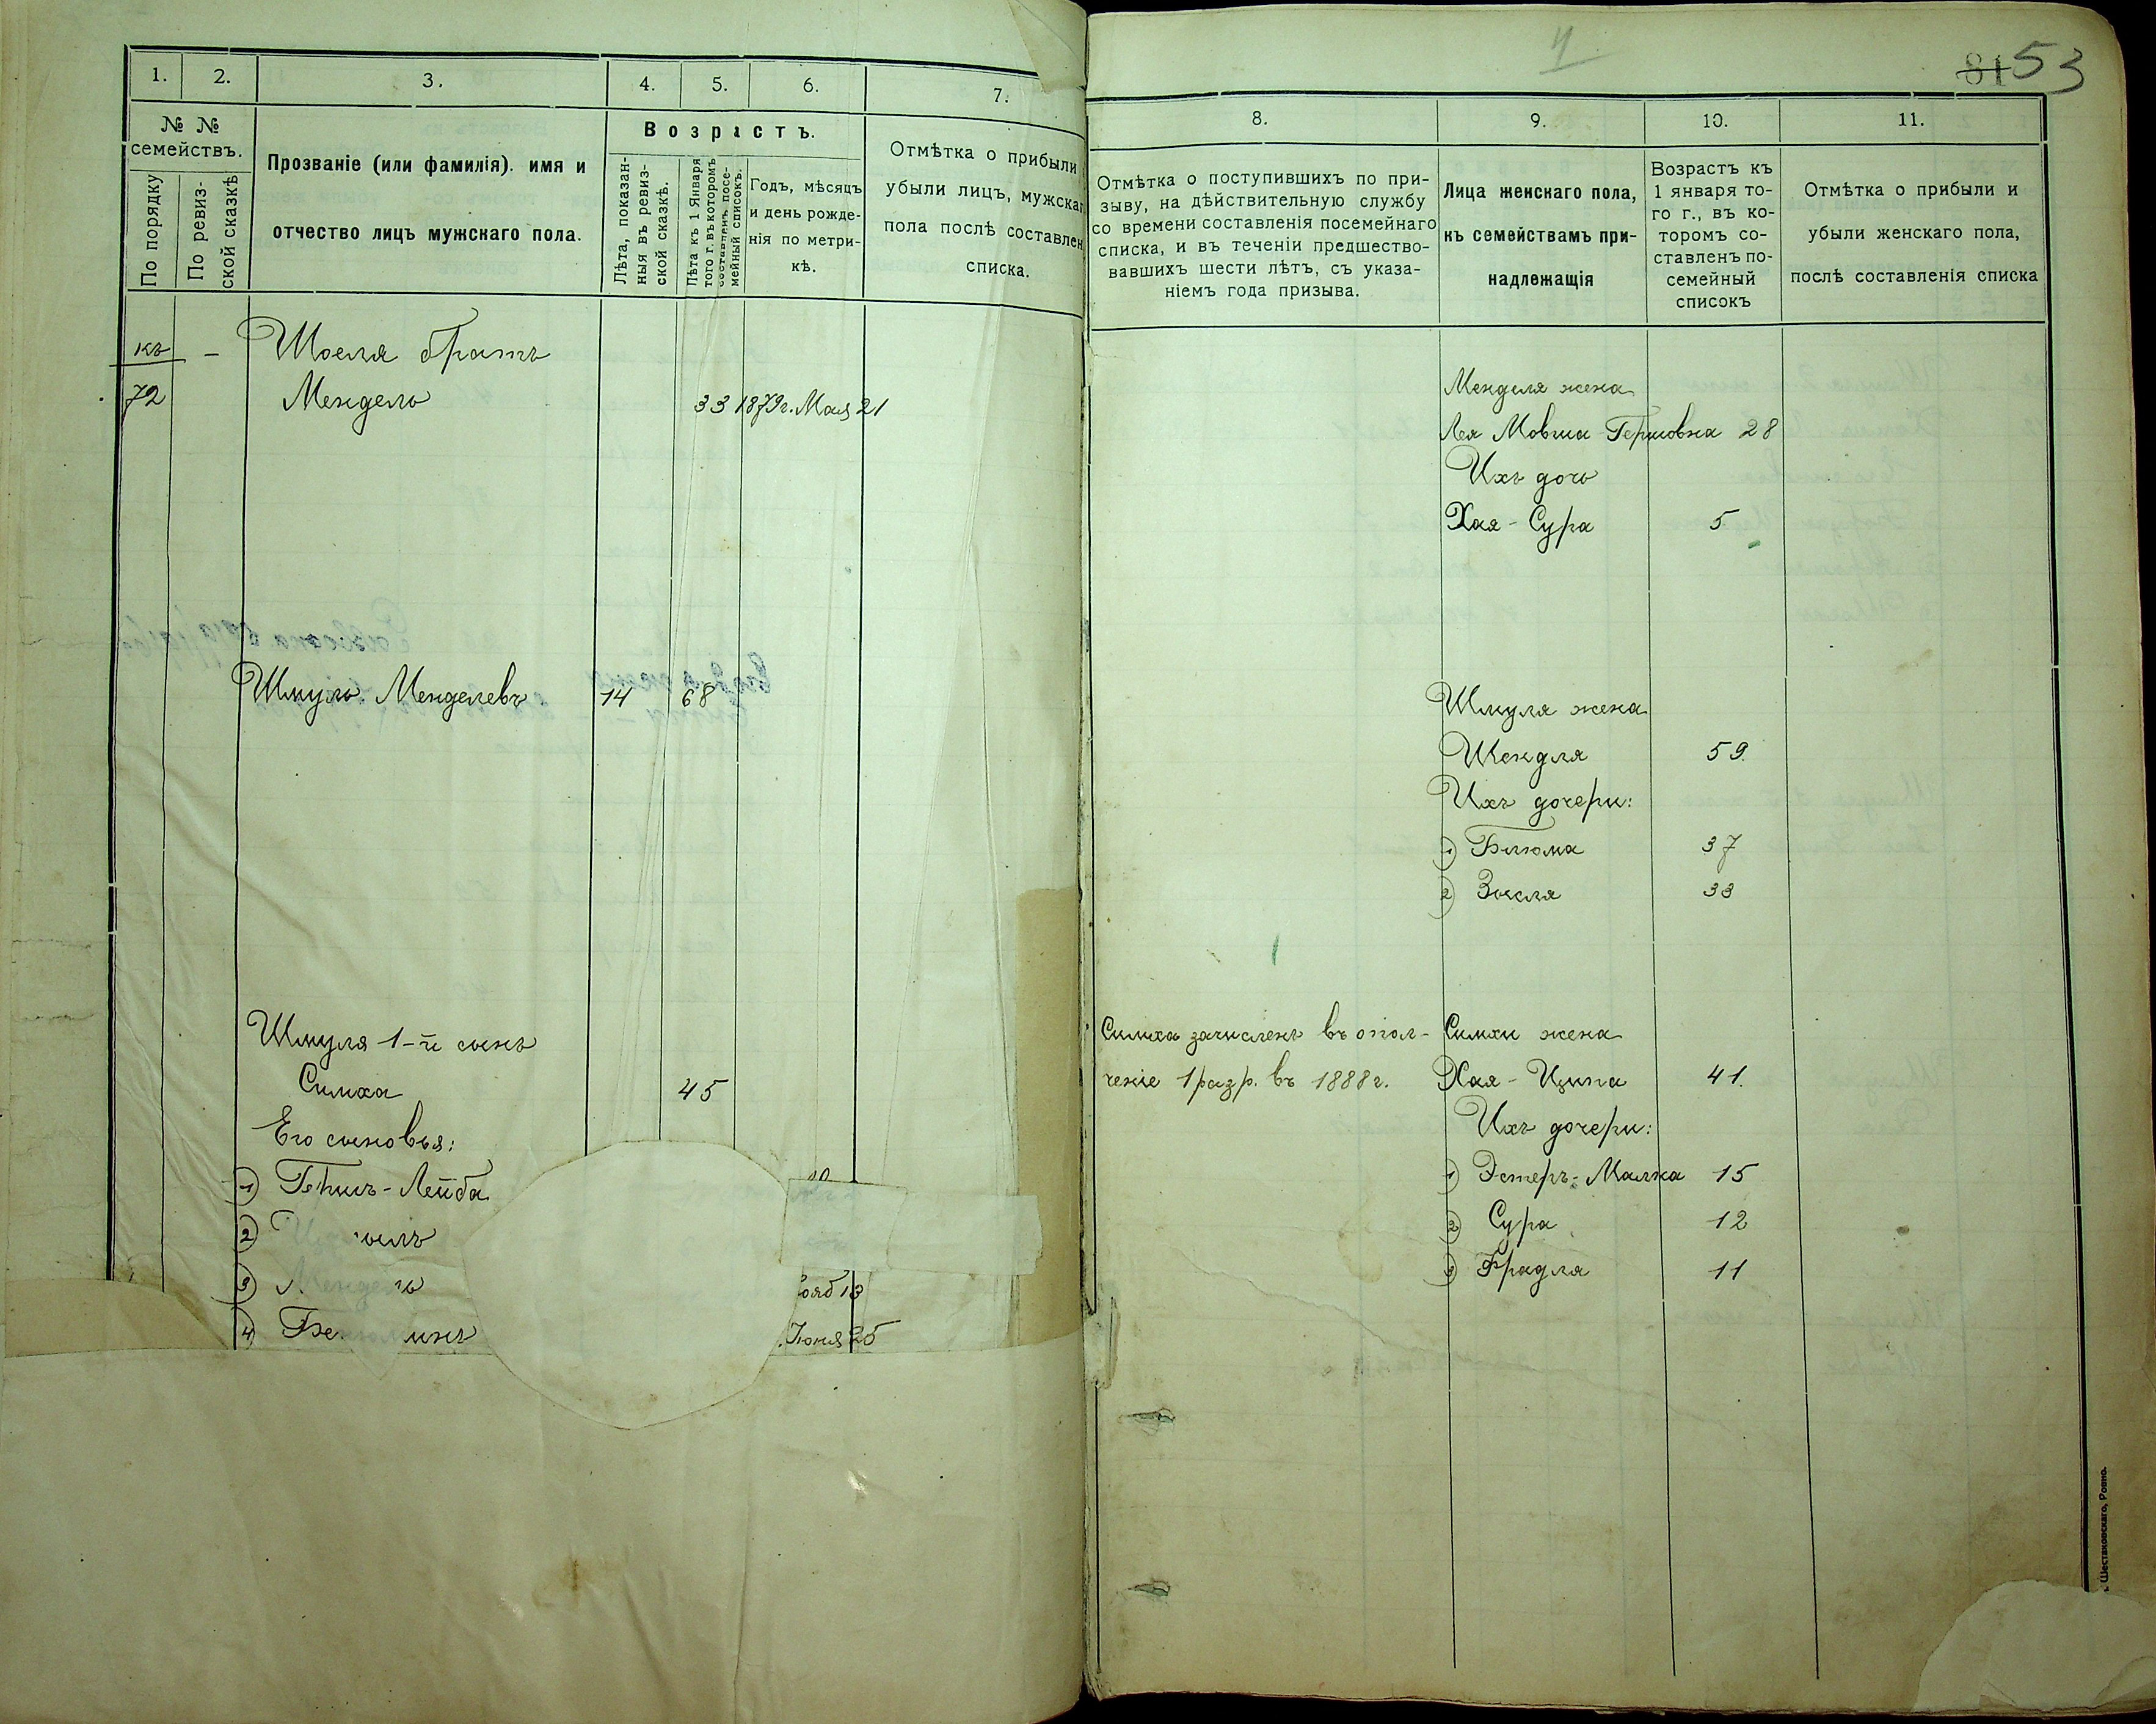 1. 2. 3. 4. 5. 6. 7.
№ №
семействъ.
По порядку
По ревиз-
ской сказкѣ
Прозваніе (или фамилія). имя и
отчество лицъ мужскаго пола.
Возрастъ.
Лѣта, показан-
ныя въ ревиз-
ской сказкѣ.
Лѣта къ 1 Января
того г. въ которомъ
составленъ посе-
мейный списокъ.
Годъ, мѣсяцъ
и день рожде-
нія по метри-
кѣ.
Отмѣтка о прибыли
убыли лицъ, мужскаг
пола послѣ составлен
списка.
къ — Шоеля братъ
72 Мендель 33 1879г. Мая 21
Шмуль Менделевъ 14 68
Шмуля 1-й сынъ
Симха 45
Его сыновья:
1) Гершъ-Лейба
2)
3)
4) Бе
нояб 13
Іюня 25
81 53
8. 9. 10. 11.
Отмѣтка о поступившихъ по при-
зыву, на дѣйствительную службу
со времени составленія посемейнаго
списка, и въ теченіи предшество-
вавшихъ шести лѣтъ, съ указа-
ніемъ года призыва.
Лица женскаго пола,
къ семействамъ при-
надлежащія
Возрастъ къ
1 января то-
го г., въ ко-
торомъ со-
ставленъ по-
семейный
списокъ
Отмѣтка о прибыли и
убыли женскаго пола,
послѣ составленія списка
Менделя жена
Лея Мовша-Гершовна 28
Ихъ дочь
Хая-Сура 5
Шмуля жена
Шендля 59
Ихъ дочери:
1) Блюма 37
2) Зисля 33
Симха зачисленъ въ опол-
ченіе 1 разр. въ 1888 г.
Симхи жена
Хая-Ципа 41.
Ихъ дочери:
1) Эстеръ-Малка 15
2) Сура 12
3) Фрадля 11
Шестаковскаго, Ровно.